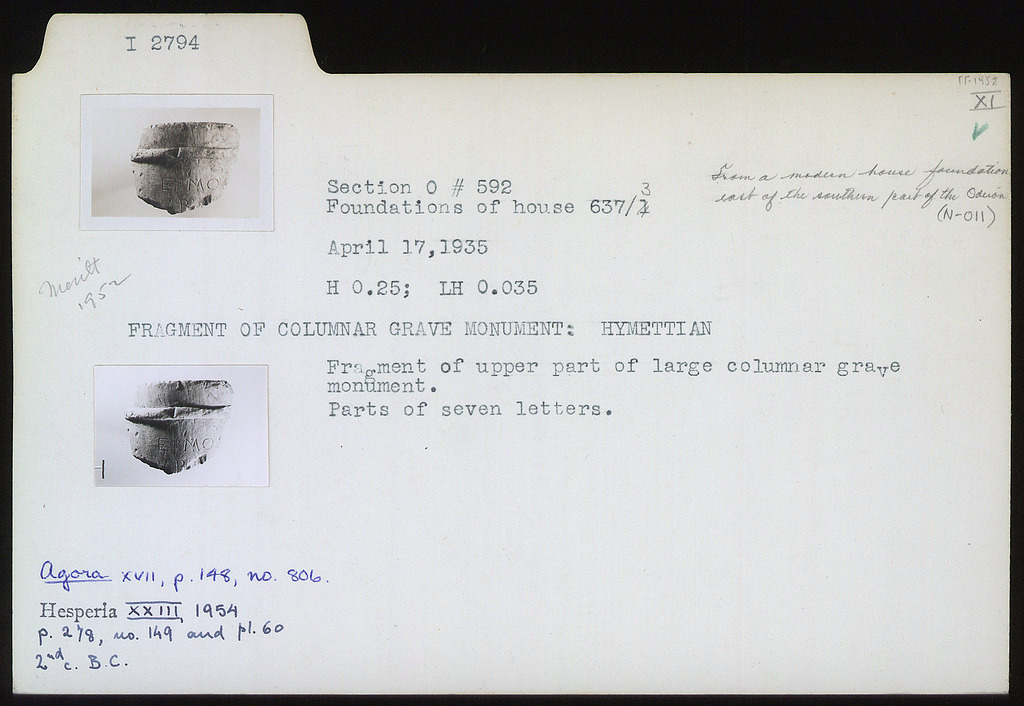 I 2794
XI
Section O # 592
Foundations of house 637/3
From a modern house foundation
east of the southern part of the Odeion
(N-011)
April 17,1935
H 0.25; LH 0.035
Meritt
1952
FRAGMENT OF COLUMNAR GRAVE MONUMENT: HYMETTIAN
Fragment of upper part of large columnar grave
monument.
Parts of seven letters.
Agora XVII, p. 148, no. 806.
Hesperia XXIII, 1954
p. 278, no. 149 and pl. 60
2nd c. B.C.